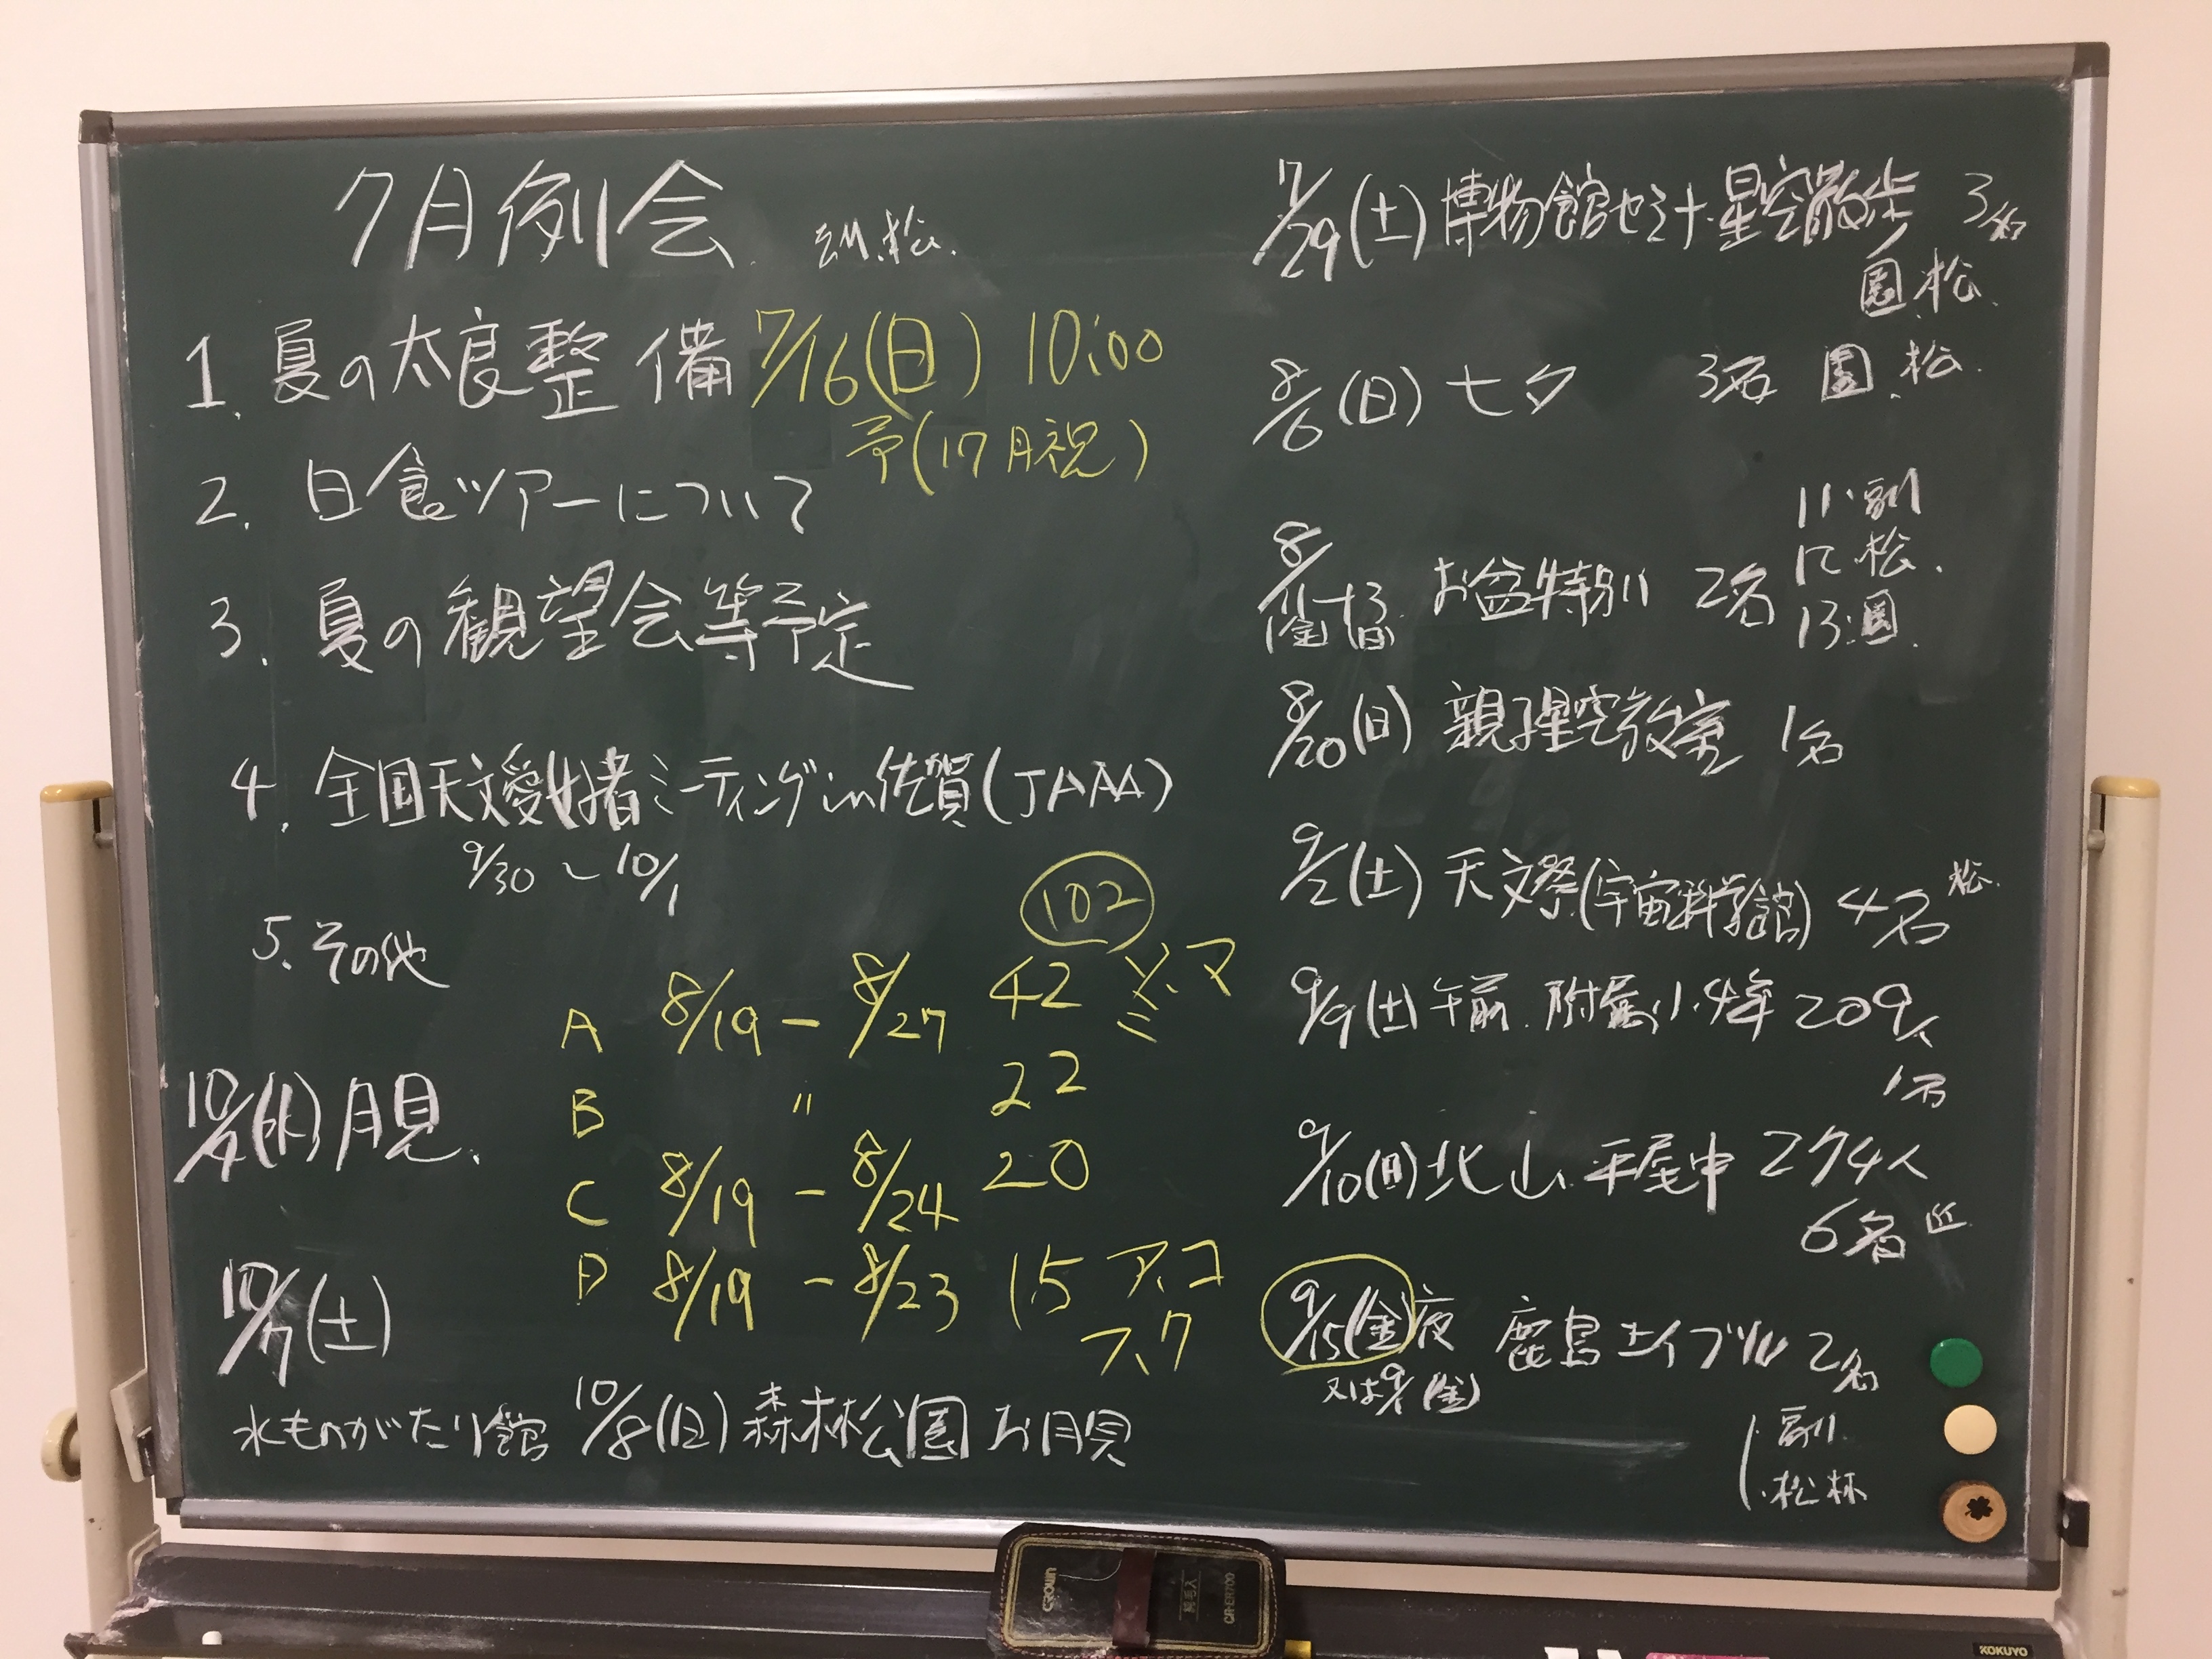 7月例会
1. 夏の太良整備 7/16(日) 10:00
予(17月祝)
2. 日食ツアーについて
3. 夏の観望会等予定
4. 全国天文愛好者ミーティングin佐賀(JAAA)
9/30~10/1
5. その他
102
A 8/19 - 8/27 42 ソ、マ
ミ
B 〃 22
C 8/19 - 8/24 20
D 8/19 - 8/23 15 ア、コ
ス、ク
10/4(水)月見.
10/7(土)
水ものがたり館 10/8(日)森林公園お月見
7/29(土)博物館セミナ・星空散歩 3名
園.松.
8/6(日)七夕 3名 園.松.
8/11(金)〜13(日) お盆特別 2名
11.副
12.松.
13.園.
8/20(日) 親子星空教室 1名
9/2(土)天文祭(宇宙科学館) 4名 松.
9/9(土)午前.附属小.4年 209人
1名
9/10(日)北山.平尾中 274人
6名
9/15(金)夜 鹿島エイブル 2名
又は9/1(金)
副.
松林
Crown
純毛入
CR-ER700
KOKUYO